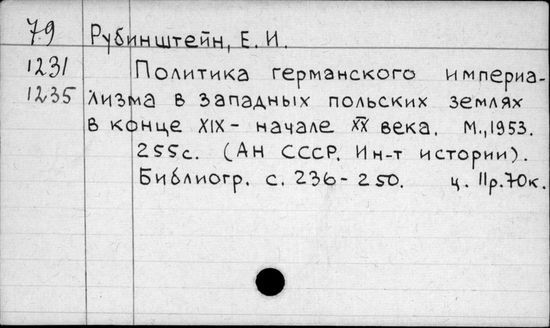 79 Рубинштейн, Е. И.
1231 Политика германского империа-
1235 лизма в западных польских землях
в конце XIX - начале XX века. М., 1953.
255с. (АН СССР. Ин-т истории).
Библиогр. с. 236-250. ц. 11р.70к.